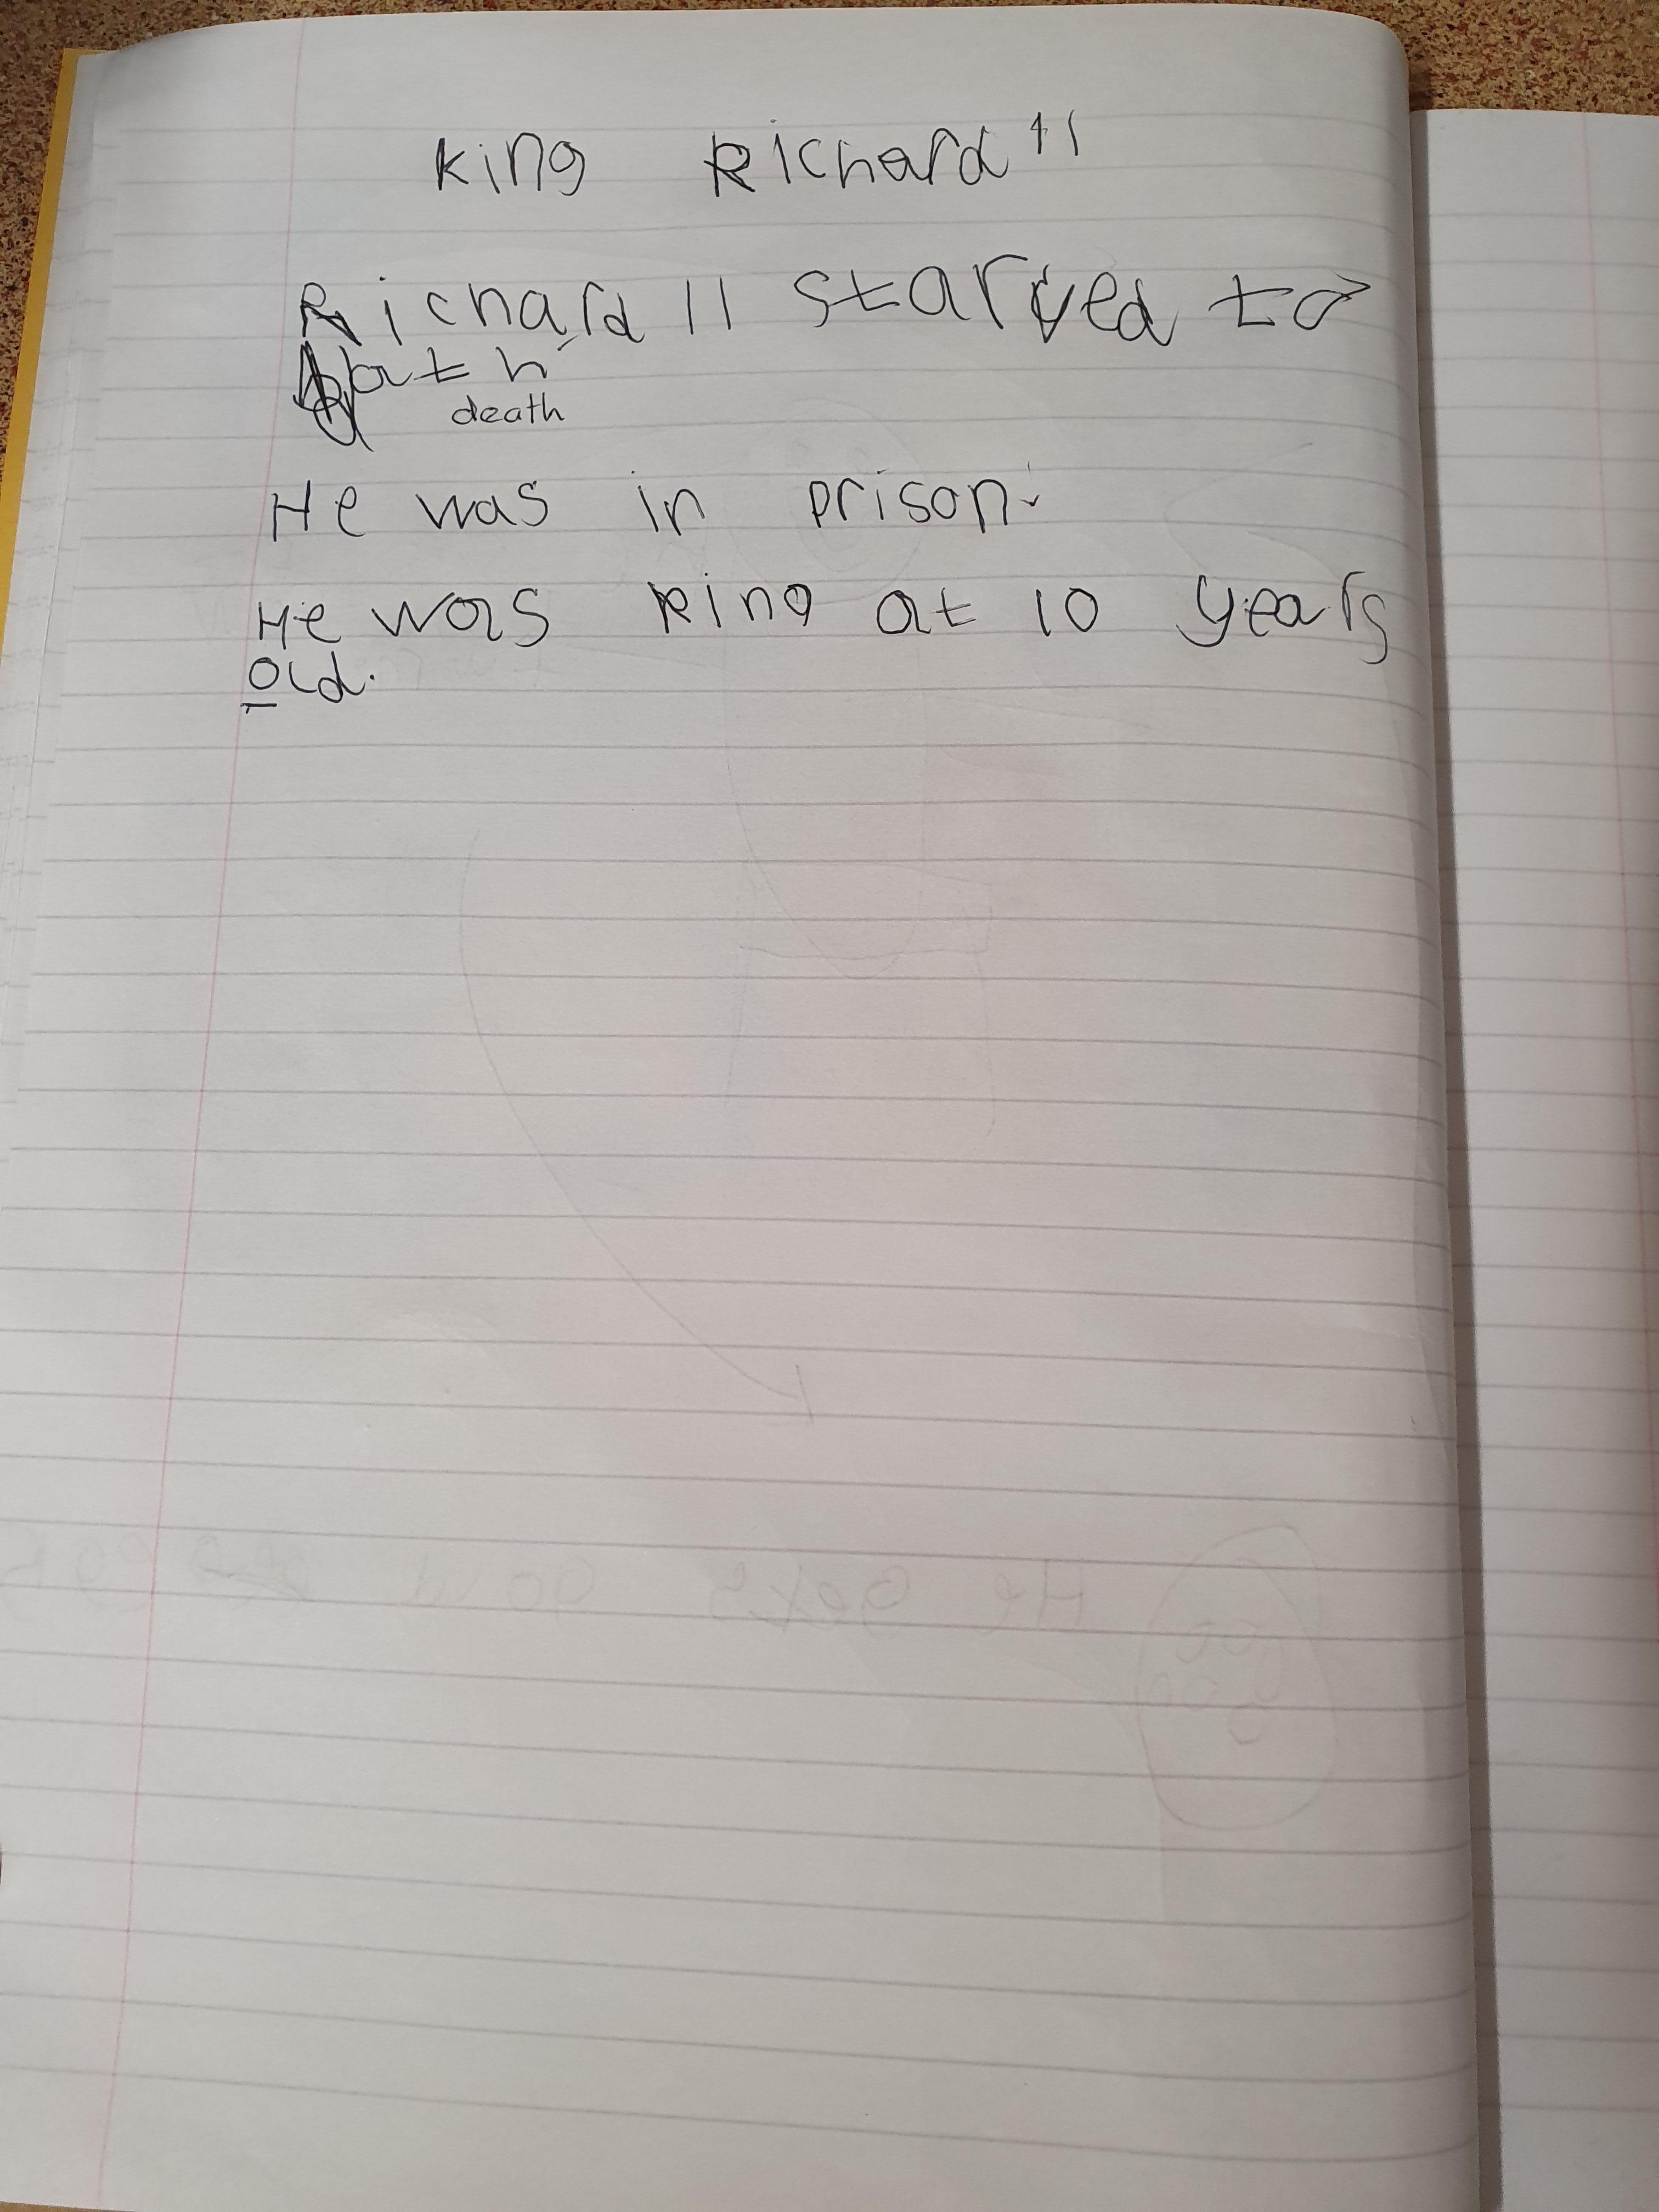 King Richard II
Richard II starved to
death
He was in prison.
He was king at 10 years
old.